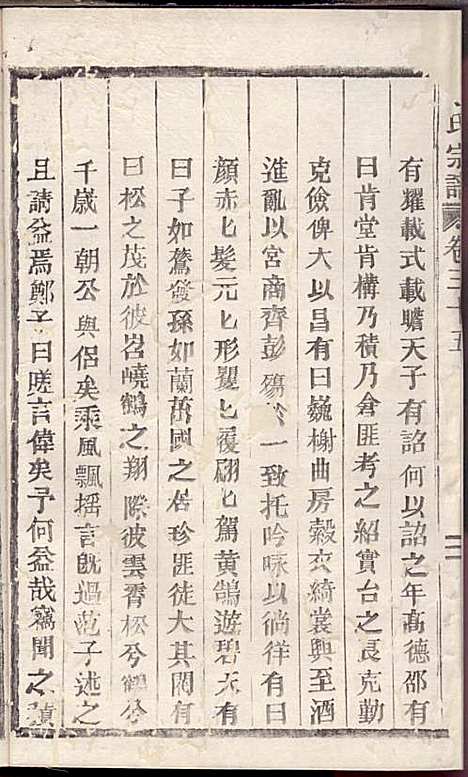 氏宗譜 卷三十五
有耀載式載瞻天子有詔何以詔之年高德邵有
曰肯堂肯構乃積乃倉匪考之紹實台之良克勤
克儉俾大以昌有曰巍榭曲房縠衣綺裳興至酒
進亂以宮商齊彭殤於一致托吟咏以徜徉有曰
顔赤匕髮元匕形矍匕覆翩匕駕黄鵠遊碧天有
曰子如鶩發孫如蘭茁國之居珍匪徒大其閥有
曰松之茂於彼岧嶢鶴之翔際彼雲霄松兮鶴兮
千歲一朝公與侶矣乘風飄摇言旣過范子述之
且請益焉鄭子曰嗟言偉矣予何益哉竊聞之積